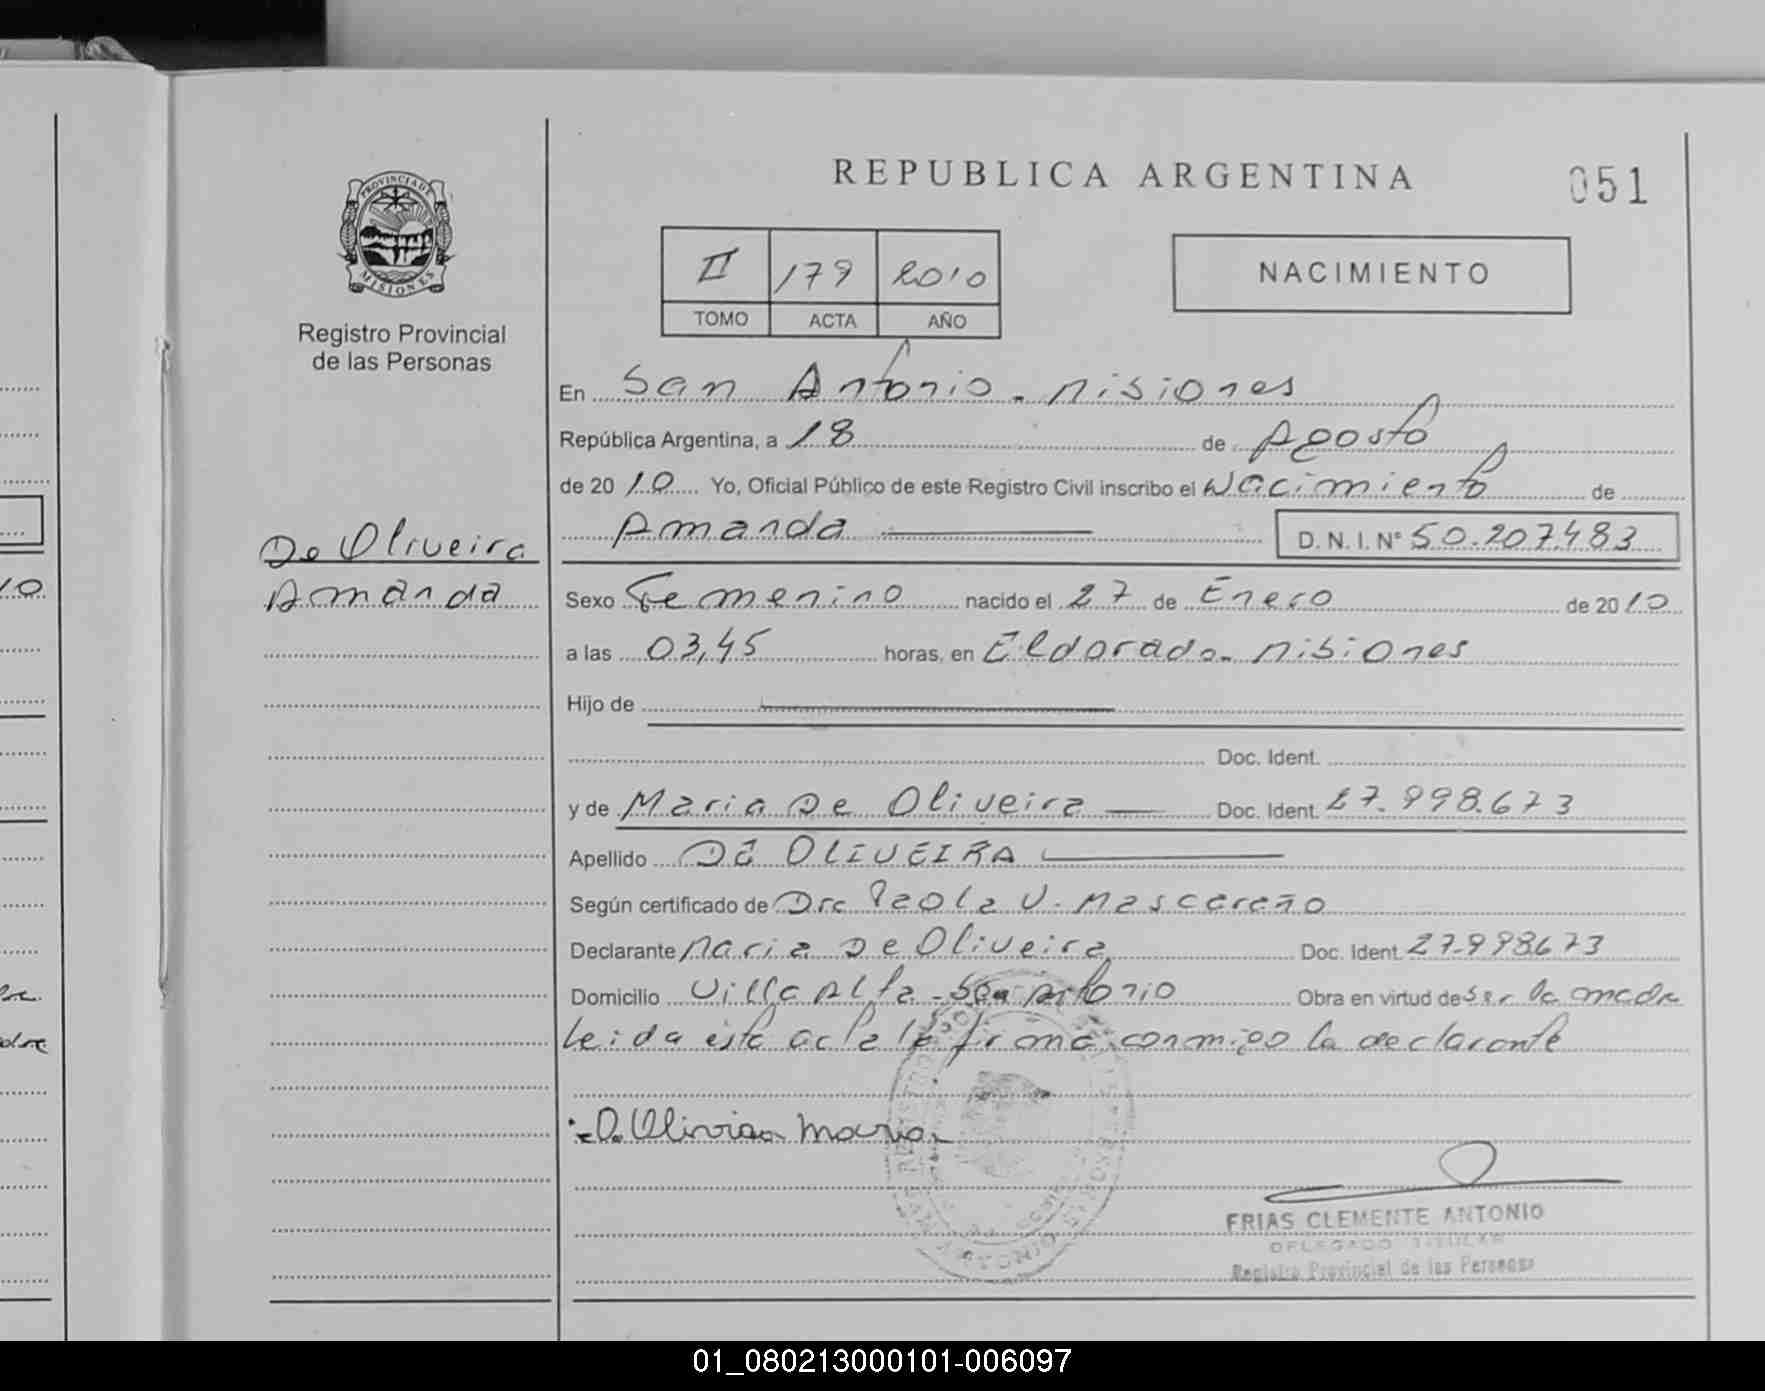 REPUBLICA ARGENTINA
051
PROVINCIA DE
MISIONES
Registro Provincial
de las Personas
II 179 2010
TOMO ACTA AÑO
NACIMIENTO
En San Antonio - Misiones
República Argentina, a 18 de Agosto
de 2010 Yo, Oficial Público de este Registro Civil inscribo el Nacimiento de
Amanda D.N.I. N° 50.207.483
De Oliveira
Amanda
Sexo Femenino nacido el 27 de Enero de 2010
a las 03,45 horas, en Eldorado - Misiones
Hijo de
Doc. Ident.
y de Maria De Oliveira Doc. Ident. 27.998.673
Apellido DE OLIVEIRA
Según certificado de Dra Paola V. Mascareño
Declarante Maria De Oliveira Doc. Ident. 27.998.673
Domicilio Villa Alta - San Antonio Obra en virtud de Ser la madre
Leida esta acta la firma conmigo la declarante
D. Maria
FRIAS CLEMENTE ANTONIO
DELEGADO TITULAR
Registro Provincial de las Personas
10
dre
01_080213000101-006097